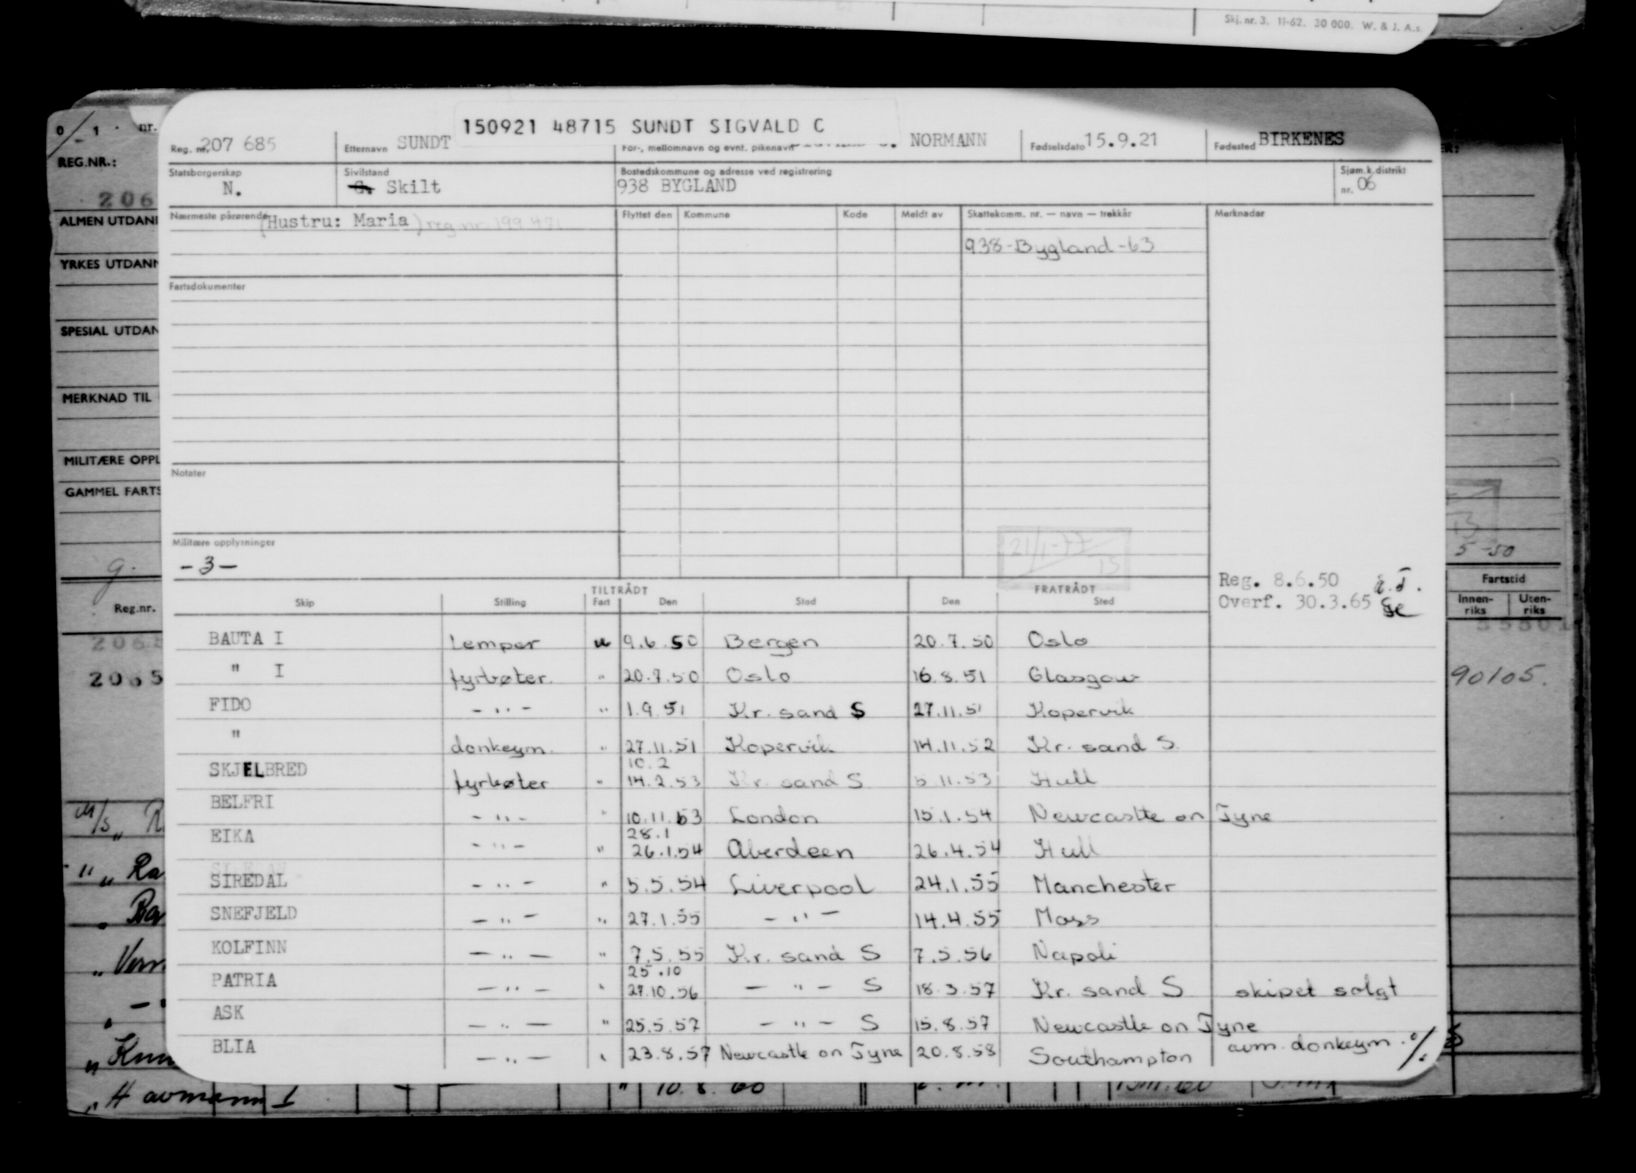 Skj. nr. 3. 11-62. 30 000. W. & J. A.s.
0/1 nr.
REG.NR.:
206
ALMEN UTDAN
YRKES UTDAN
SPESIAL UTDAN
MERKNAD TIL
MILITÆRE OPPL
GAMMEL FARTS
g.
Reg.nr.
2065
150921 48715 SUNDT SIGVALD C
Reg. nr. 207 685 Etternavn SUNDT For-, mellomnavn og evnt. pikenavn NORMANN Fødselsdato 15.9.21 Fødested BIRKENES
Statsborgerskap N. Sivilstand G. Skilt Bostedskommune og adresse ved registrering 938 BYGLAND Sjøm.k.distrikt nr. 06
Nærmeste pårørende (Hustru: Maria) reg nr. 199 471 Flyttet den Kommune Kode Meldt av Skattekomm. nr. — navn — trekkår Merknader
938-Bygland-63
Fartsdokumenter
Notater
Militære opplysninger
-3-
21/1-77
15
Reg. 8.6.50
Overf. 30.3.65
TILTRÅDT FRATRÅDT
Skip Stilling Fart Den Sted Den Sted
BAUTA I Lemper u 9.6.50 Bergen 20.7.50 Oslo
" I fyrbøter " 20.7.50 Oslo 16.8.51 Glasgow
FIDO - " - " 1.9.51 Kr. sand S 27.11.51 Kopervik
" donkeym. " 27.11.51 Kopervik 14.11.52 Kr. sand S.
10.2
SKJELBRED fyrbøter " 14.2.53 Kr. sand S 5.11.53 Hull
BELFRI - " - " 10.11.53 London 15.1.54 Newcastle on Tyne
28.1
EIKA - " - " 26.1.54 Aberdeen 26.4.54 Hull
SIREDAL - " - " 5.5.54 Liverpool 24.1.55 Manchester
SNEFJELD - " - " 27.1.55 - " - 14.4.55 Moss
KOLFINN - " - " 7.5.55 Kr. sand S 7.5.56 Napoli
25.10
PATRIA - " - " 27.10.56 - " - S 18.3.57 Kr. sand S skipet solgt
ASK - " - " 25.5.57 - " - S 15.8.57 Newcastle on Tyne
BLIA - " - " 23.8.57 Newcastle on Tyne 20.8.58 Southampton avm. donkeym. %
5-50
Fartstid
Innen-riks Uten-riks
90105.
M/S
" Ra